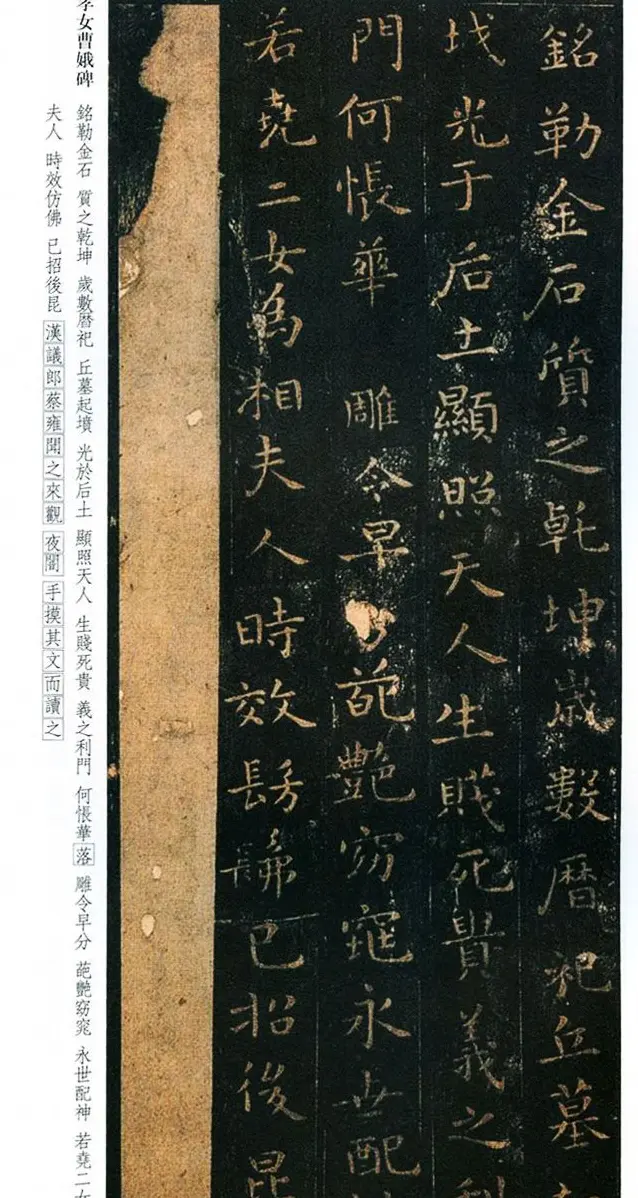 銘勒金石質之乾坤歲數曆祀丘墓
坟光于后土顯照天人生賤死貴義之利
門何悵華 雕令早分葩艷窈窕永世配
若堯二女為相夫人時效髣髴已招後昆
孝女曹娥碑
銘勒金石 質之乾坤 歲數曆祀 丘墓起墳 光於后土 顯照天人 生賤死貴 義之利門 何悵華落 雕令早分 葩艷窈窕 永世配神 若堯二女
夫人 時效仿佛 已招後昆 漢議郎蔡雍聞之來觀 夜闇 手摸其文而讀之